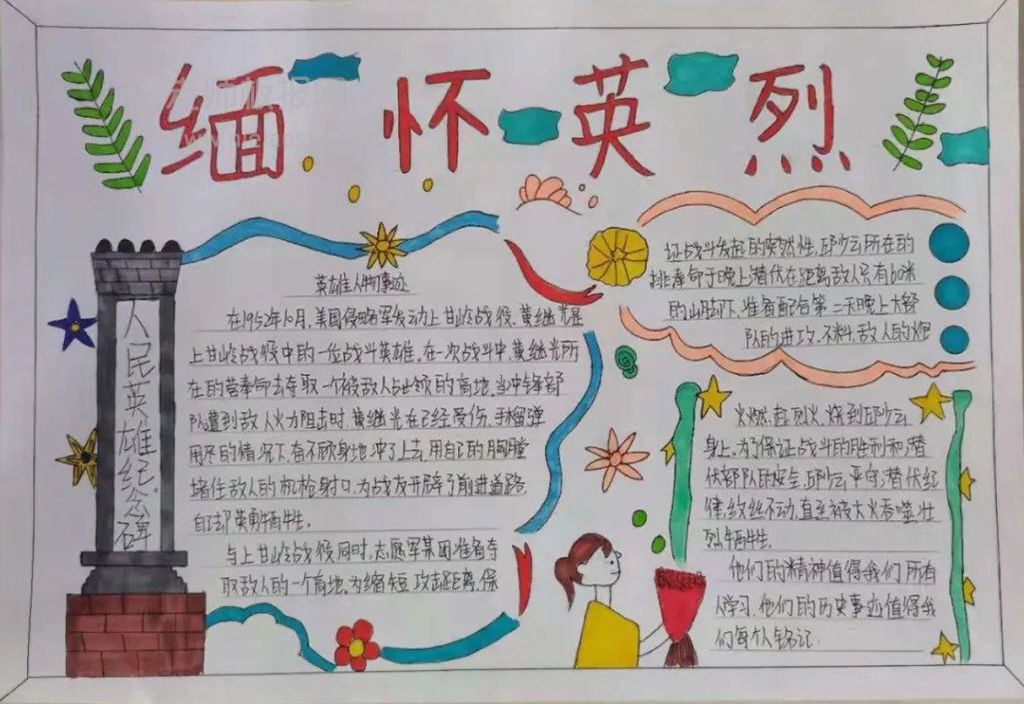 缅怀英烈
人民英雄纪念碑
英雄人物事迹
在1952年10月,美国侵略军发动上甘岭战役.黄继光是
上甘岭战役中的一位战斗英雄.在一次战斗中,黄继光所
在的营奉命去夺取一个被敌人占领的高地.当冲锋部
队遭到敌人火力阻击时.黄继光在已经受伤、手榴弹
用尽的情况下,奋不顾身地冲了上去,用自己的胸膛
堵住敌人的机枪射口.为战友开辟了前进道路.
自己却英勇牺牲.
与上甘岭战役同时,志愿军某团准备夺
取敌人的一个高地.为缩短攻击距离,保
证战斗发起的突然性,邱少云所在的
排奉命于晚上潜伏在距离敌人只有60米
的山坡下,准备配合第二天晚上大部
队的进攻.不料,敌人的炮
火燃起烈火,烧到邱少云
身上.为了保证战斗的胜利和潜
伏部队的安全,邱少云严守潜伏纪
律,纹丝不动,直至被大火吞噬,壮
烈牺牲.
他们的精神值得我们所有
人学习.他们的历史事迹值得我
们每个人铭记.